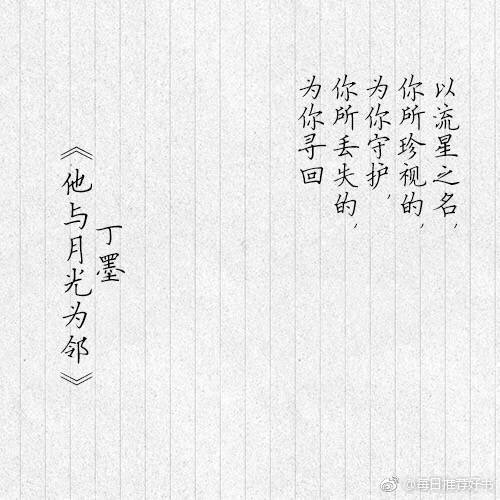 以流星之名，
你所珍视的，
为你守护，
你所丢失的，
为你寻回
丁墨
《他与月光为邻》
@每日推荐好书